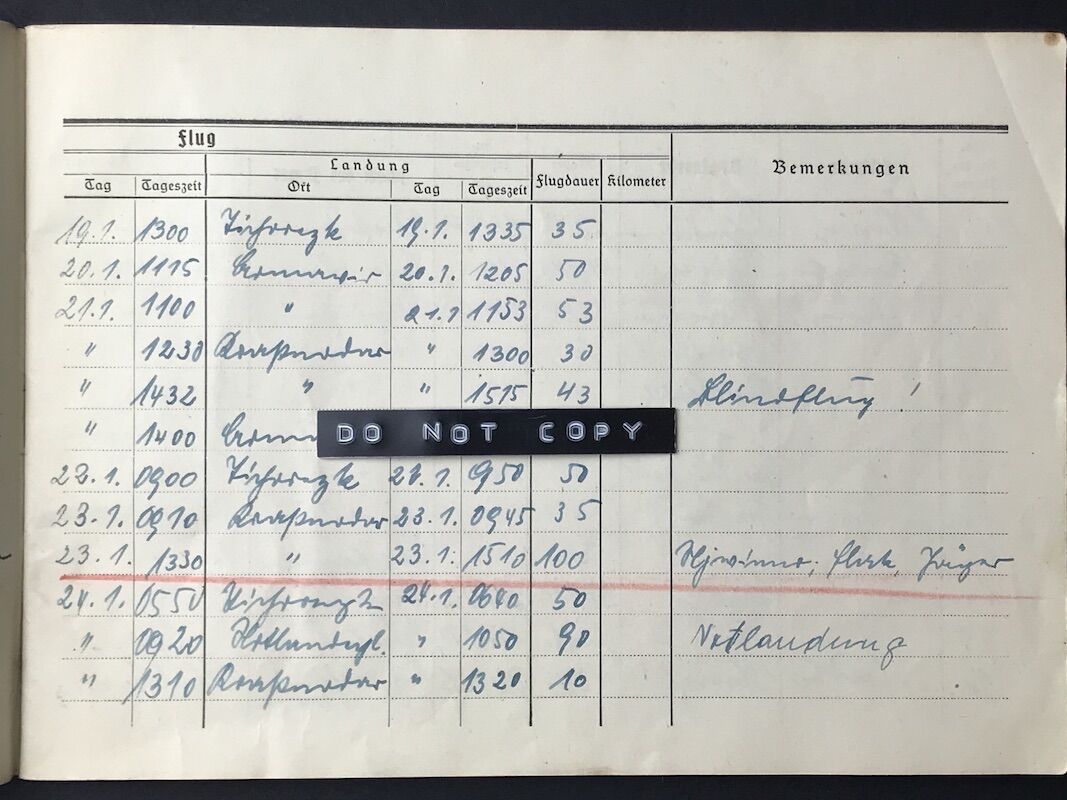 Flug
Landung
Bemerkungen
Tag Tageszeit Ort Tag Tageszeit Flugdauer Kilometer
19.1. 1300 Tichorezk 19.1. 1335 35
20.1. 1115 Armawir 20.1. 1205 50
21.1. 1100 " 21.1 1153 53
" 1230 Kraßnodar " 1300 30
" 1432 " " 1515 43 Blindflug!
" 1400
DO NOT COPY
22.1. 0900 Tichorezk 22.1. 950 50
23.1. 0910 Kraßnodar 23.1. 0945 35
23.1. 1330 " 23.1. 1510 100 Flak, Jäger
24.1. 0550 Tichorezk 24.1. 0640 50
" 0920 Notlandepl. " 1050 90 Notlandung
" 1310 Kraßnodar " 1320 10